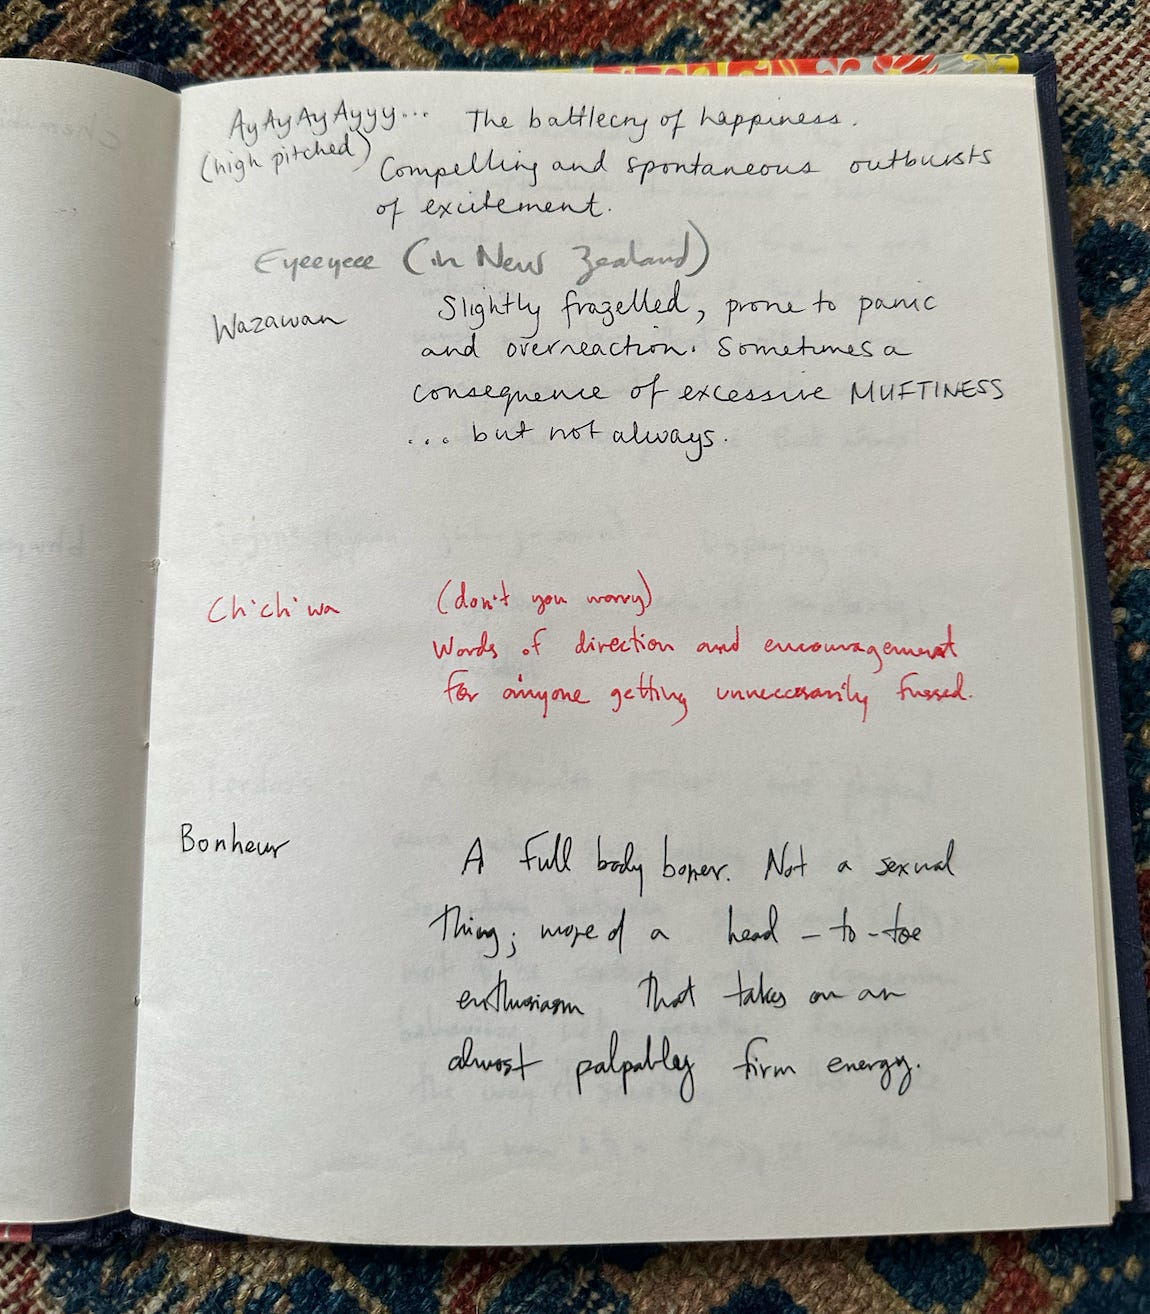 AyAyAyAyyy... The battlecry of happiness.
(high pitched) Compelling and spontaneous outbursts
of excitement.
Eyeeyeee (in New Zealand)
Wazawan Slightly frazelled, prone to panic
and overreaction. Sometimes a
consequence of excessive MUFTINESS
... but not always.
Chichiwa (don't you worry)
Words of direction and encouragement
for anyone getting unneccesarily fussed.
Bonheur A full body boner. Not a sexual
thing; more of a head-to-toe
enthusiasm that takes on an
almost palpably firm energy.